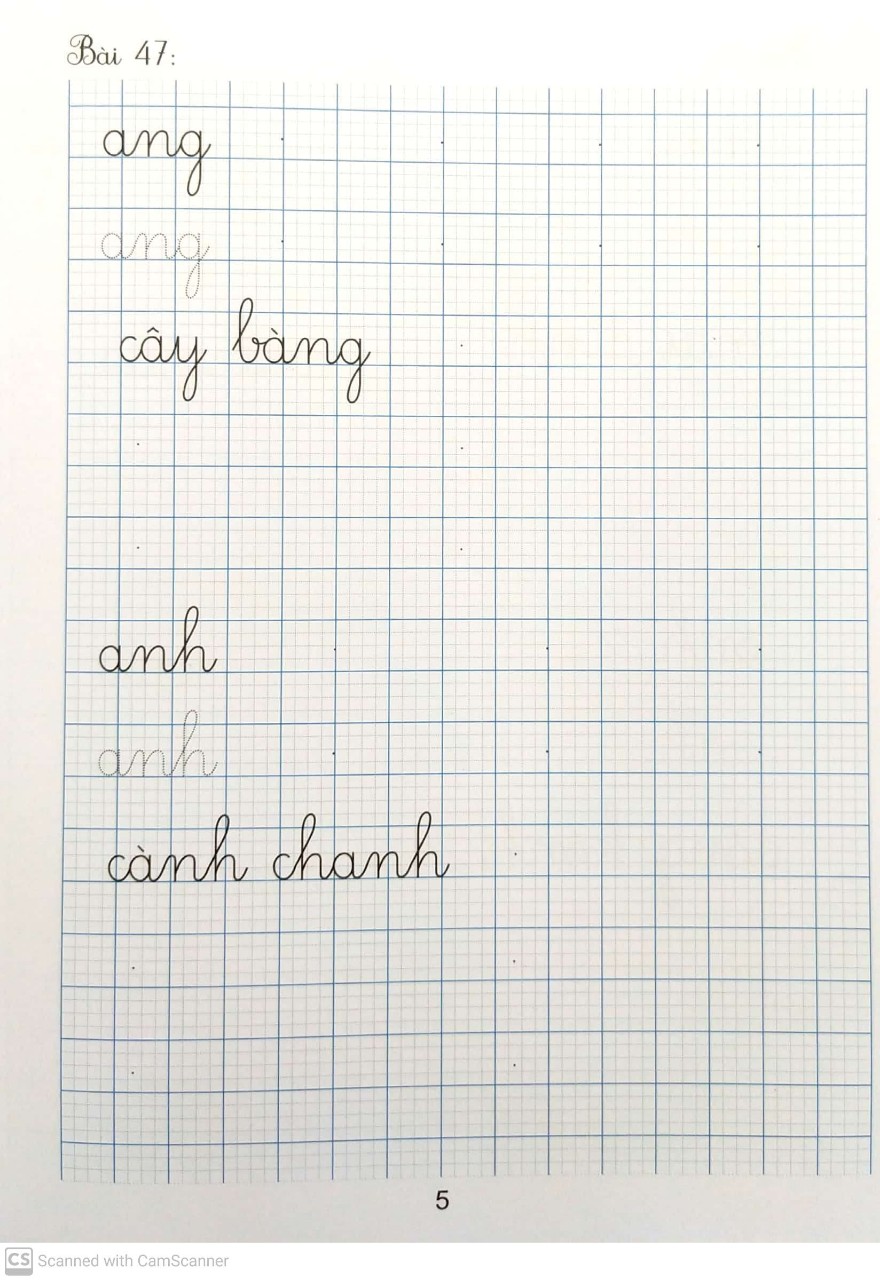 Bài 47:
ang
ang
cây bàng
anh
anh
cành chanh
5
CS Scanned with CamScanner